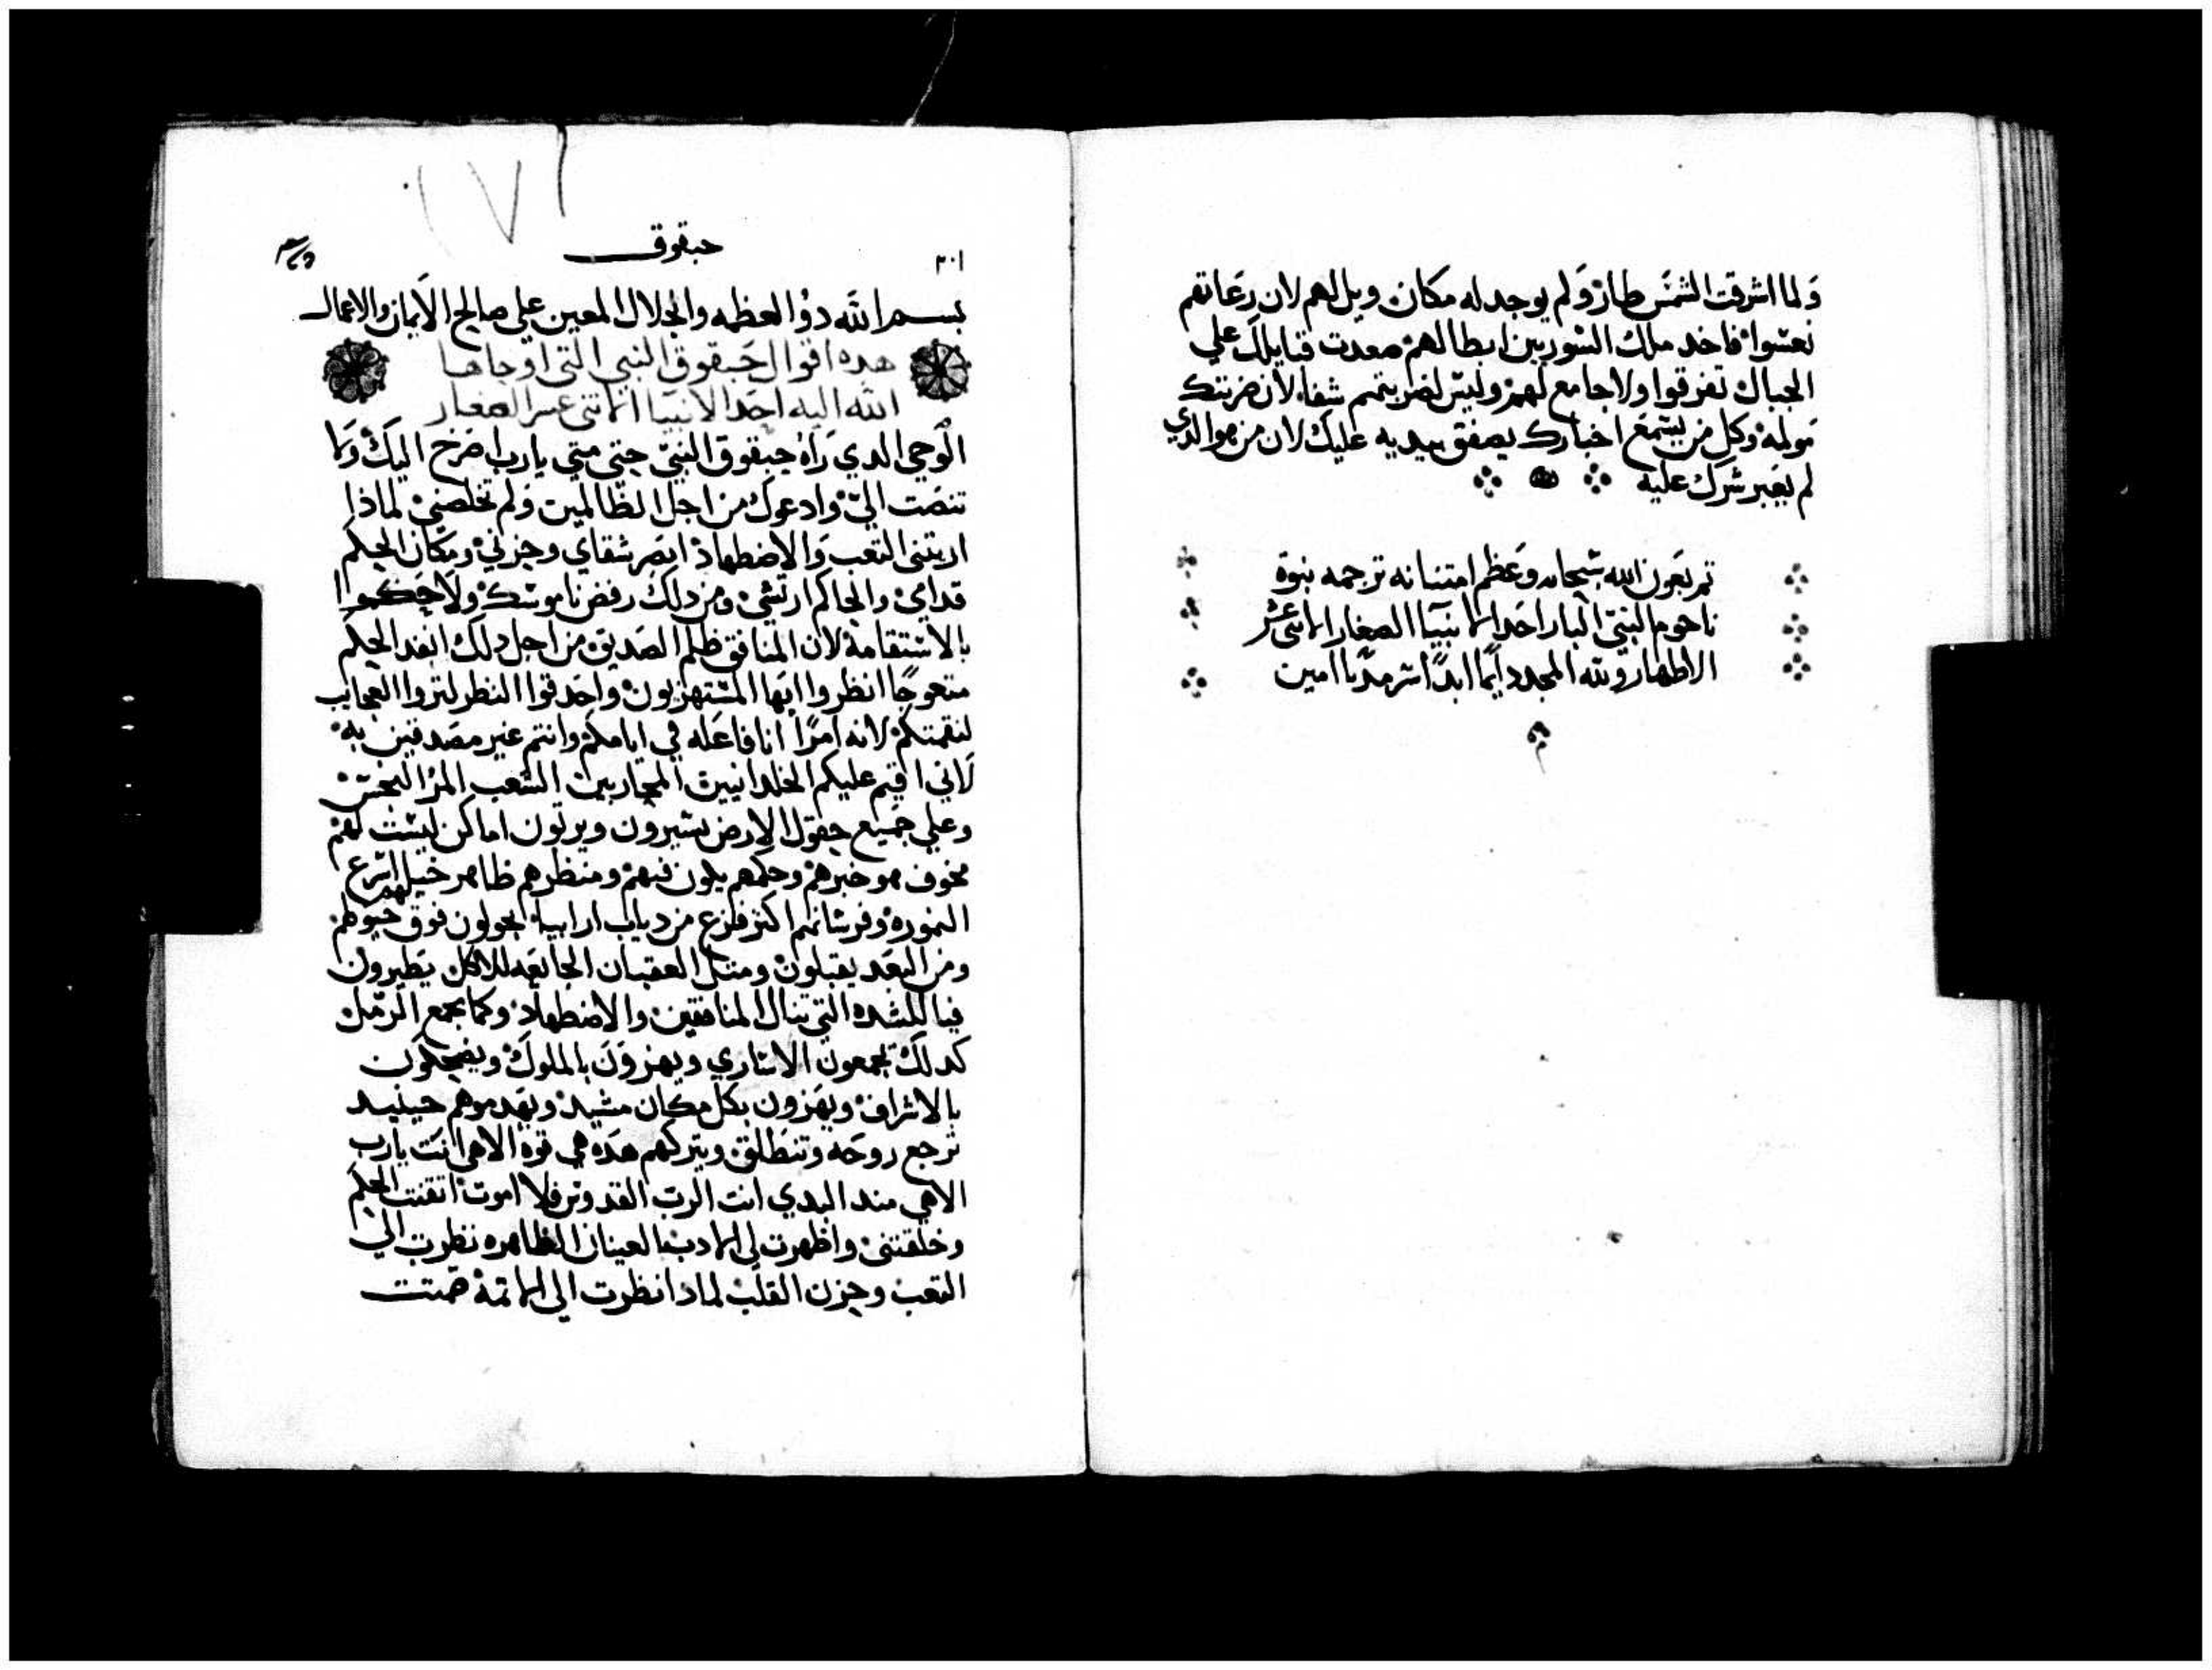 ولما اشرقت الشمس طار ولم يوجد له مكان ويل لهم لان رعاتهم
نعسوا فاخد ملك السوريين ابطالهم صعدت قبايلك علي
الجبال تفرقوا ولا جامع لهم وليس لضربتهم شفاء لان ضربتك
مولمه وكل من يسمع اخبارك يصفق بيديه عليك لان من هو الدي
لم يعبر شرك عليه
تم بعون الله سبحانه وعظم امتنانه ترجمه نبوة
ناحوم النبي البار احد الانبيا الصغار الاتنى عشر
الاطهار ولله المجد دايما ابدا سرمديا امين
١٧١
حبقوق
٢٠١
بسم الله دو العظمه والجلال المعين علي صالح الايمان والاعمال
هده اقوال حبقوق النبي التي اوحاها
الله اليه احد الانبيا الاتنى عسر الصغار
الوحي الدي راه حبقوق النبي حتي متي يارب اصرخ اليك ولا
تنصت الي وادعوك من اجل الظالمين ولم تخلصني لماذا
اريتني التعب والاضطهاد ابصر شقاي وحزني ومكان الحكم
قداي والحاكم ارتشي ومن دلك رفض ناموسك ولا حكموا
بالاستقامة لان المنافق ظلم الصديق من اجل دلك انفد الحكم
متعوجا انظروا ايها المستهزيون واحدقوا النظر لتروا العجايب
لنقمتكم لانه امرا انا فاعله في ايامكم وانتم غير مصدقين به
لاني اقيم عليكم الخلدانيين المحاربين الشعب المر النجس
وعلي جميع حقول الارض يسيرون ويرتون اماكن ليست لهم
مخوف هو خبرهم وحكمهم يكون فيهم ومنظرهم ظاهر خيلهم اسرع
النموره وفرسانهم اكتر فزع من دياب ارابيا يجولون فوق خيولهم
ومن البعد يقبلون ومتل العقبان الجايعه للاكل يطيرون
فيا للشده التي تنال المنافقين والاضطهاد وكما يجمع الرمل
كدلك يجمعون الاساري ويهزون بالملوك ويضحكون
بالاشراف ويهزون بكل مكان مشيد ويهدموهم حينيد
ترجع روحه وتنطلق ويتركهم هده هي قوه الاهي انت يارب
الاهي مند البدي انت الرب القدوس فلا اموت اتقنت الحكم
وخلقتني واظهرت لي الادب العينان الطاهره نظرت الي
التعب وحزن القلب لمادا نظرت الي الاتمة صمتت